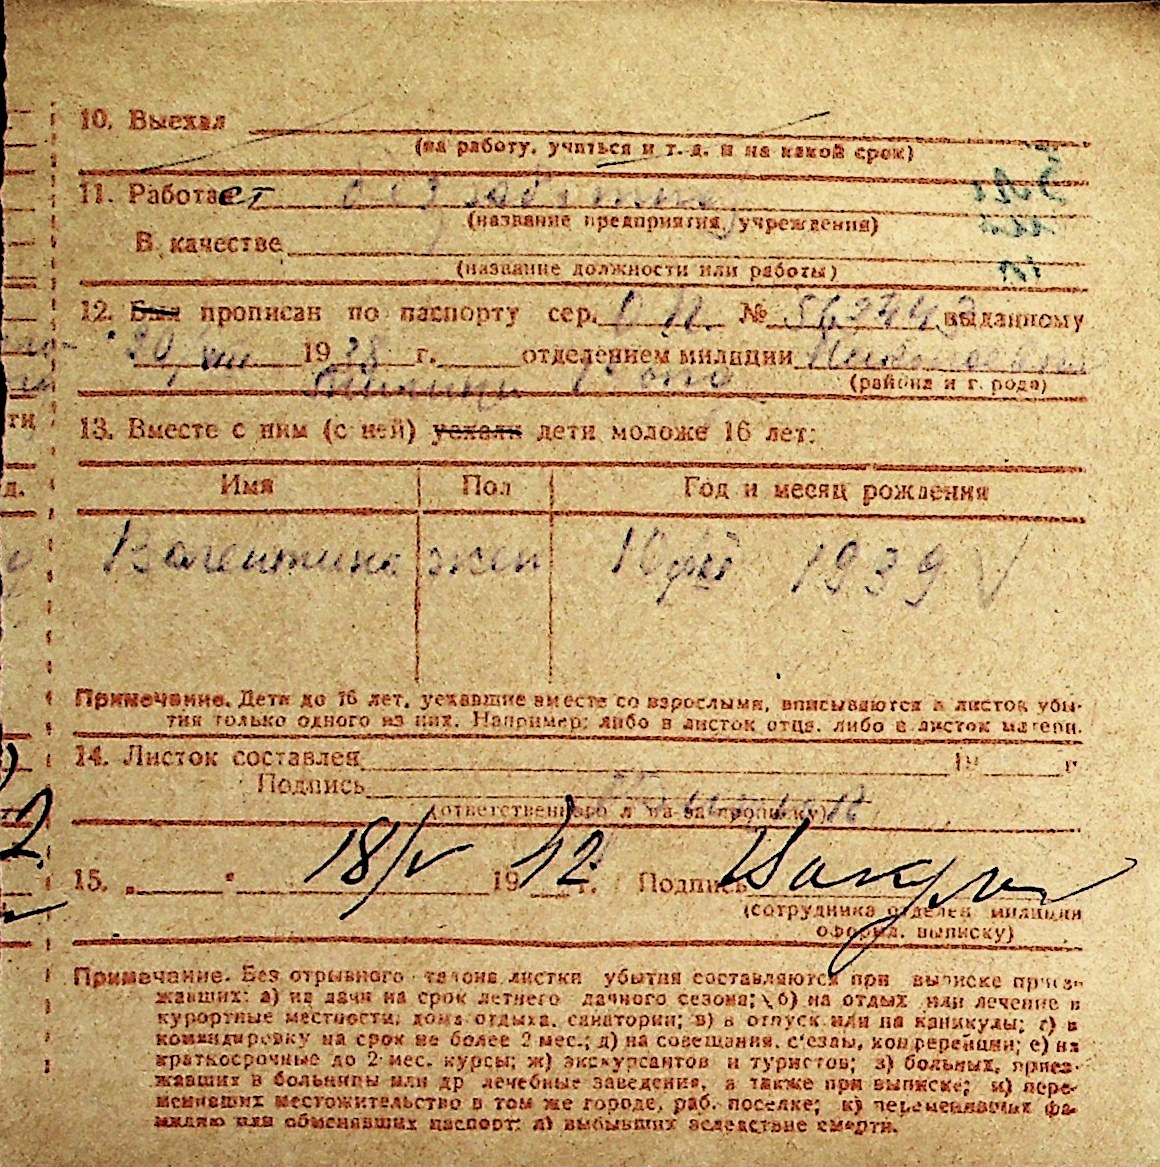 10. Выехал
(на работу, учиться и т. д. и на какой срок)
11. Работает
(название предприятия, учреждения)
В качестве
(название должности или работы)
12. Был прописан по паспорту сер. № 562443 выданному
20/VIII 1938 г. отделением милиции
(района и г. рода)
13. Вместе с ним (с ней) уехали дети моложе 16 лет:
Имя Пол Год и месяц рождения
Валентина жен 1939
Примечание. Дети до 16 лет, уехавшие вместе со взрослыми, вписываются в листок убы-
тия только одного из них. Например: либо в листок отца, либо в листок матери.
14. Листок составлен 19 г.
Подпись
(ответственного за прописку)
15. 18/V 1942 г. Подпись
(сотрудника отделен. милиции
оформл. выписку)
Примечание. Без отрывного талона листки убытия составляются при выписке приез-
жавших: а) на дачи на срок летнего дачного сезона; б) на отдых или лечение в
курортные местности, дома отдыха, санатории; в) в отпуск или на каникулы; г) в
командировку на срок не более 2 мес.; д) на совещания, с'езды, конференции; е) на
краткосрочные до 2 мес. курсы; ж) экскурсантов и туристов; з) больных, приез-
жавших в больницы или др лечебные заведения, а также при выписке; и) пере-
менивших местожительство в том же городе, раб. поселке; к) переменивших фа-
милию или обменявших паспорт; л) выбывших вследствие смерти.